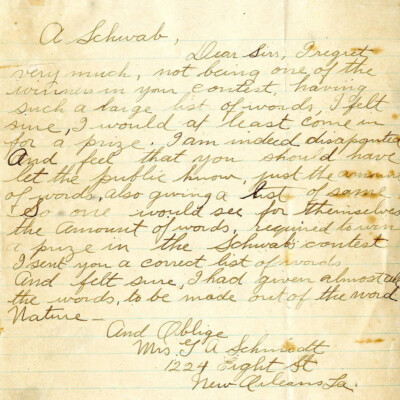 A Schwab,
Dear Sir, I regret
very much, not being one of the
winners in your contest, having
such a large list of words, I felt
sure, I would at least come in
for a prize. I am indeed disapointed
And feel that you should have
let the public know, just the
of words, also giving a list of same
So one would see for themselves
the amount of words, required to win
a prize in the Schwab contest
I sent you a correct list of words
And felt sure, I had given almost all
the words, to be made out of the word
Nature—
And Oblige
Mrs. G A Schmodt
1224 Eight St
New Orleans La.